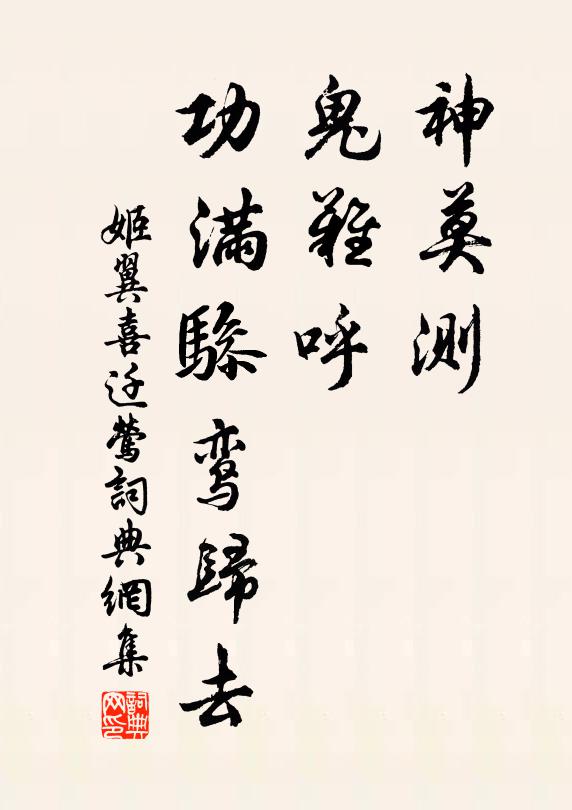 神莫測
鬼難呼
功滿驂鸾歸去
姬翼喜迁莺詞典網集
詞典网印